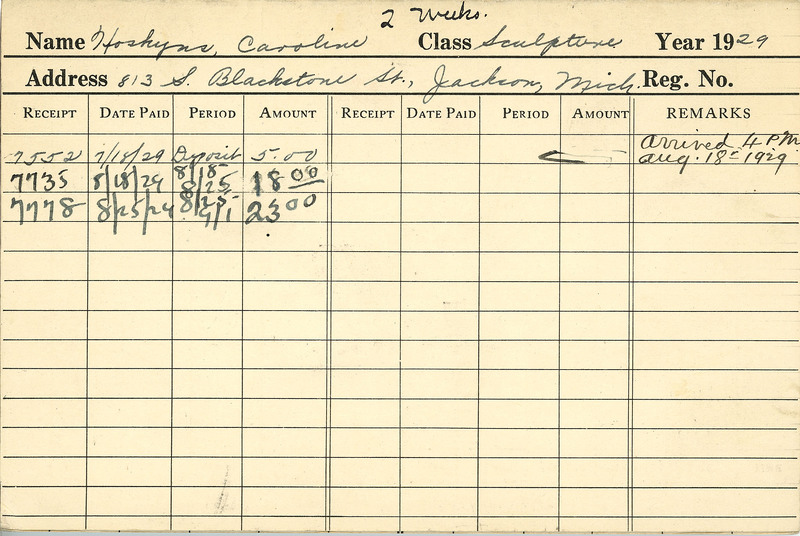 2 Weeks.
Name Hoskyns, Caroline Class Sculpture Year 1929
Address 813 S. Blackstone St., Jackson, Mich. Reg. No.
RECEIPT DATE PAID PERIOD AMOUNT RECEIPT DATE PAID PERIOD AMOUNT REMARKS
Arrived 4 P.M.
7552 7/18/29 Deposit 5.00 Aug. 18 - 1929
8/18-
7735 8/18/29 8/25 18 00
8/25-
7778 8/25/29 9/1 23 00